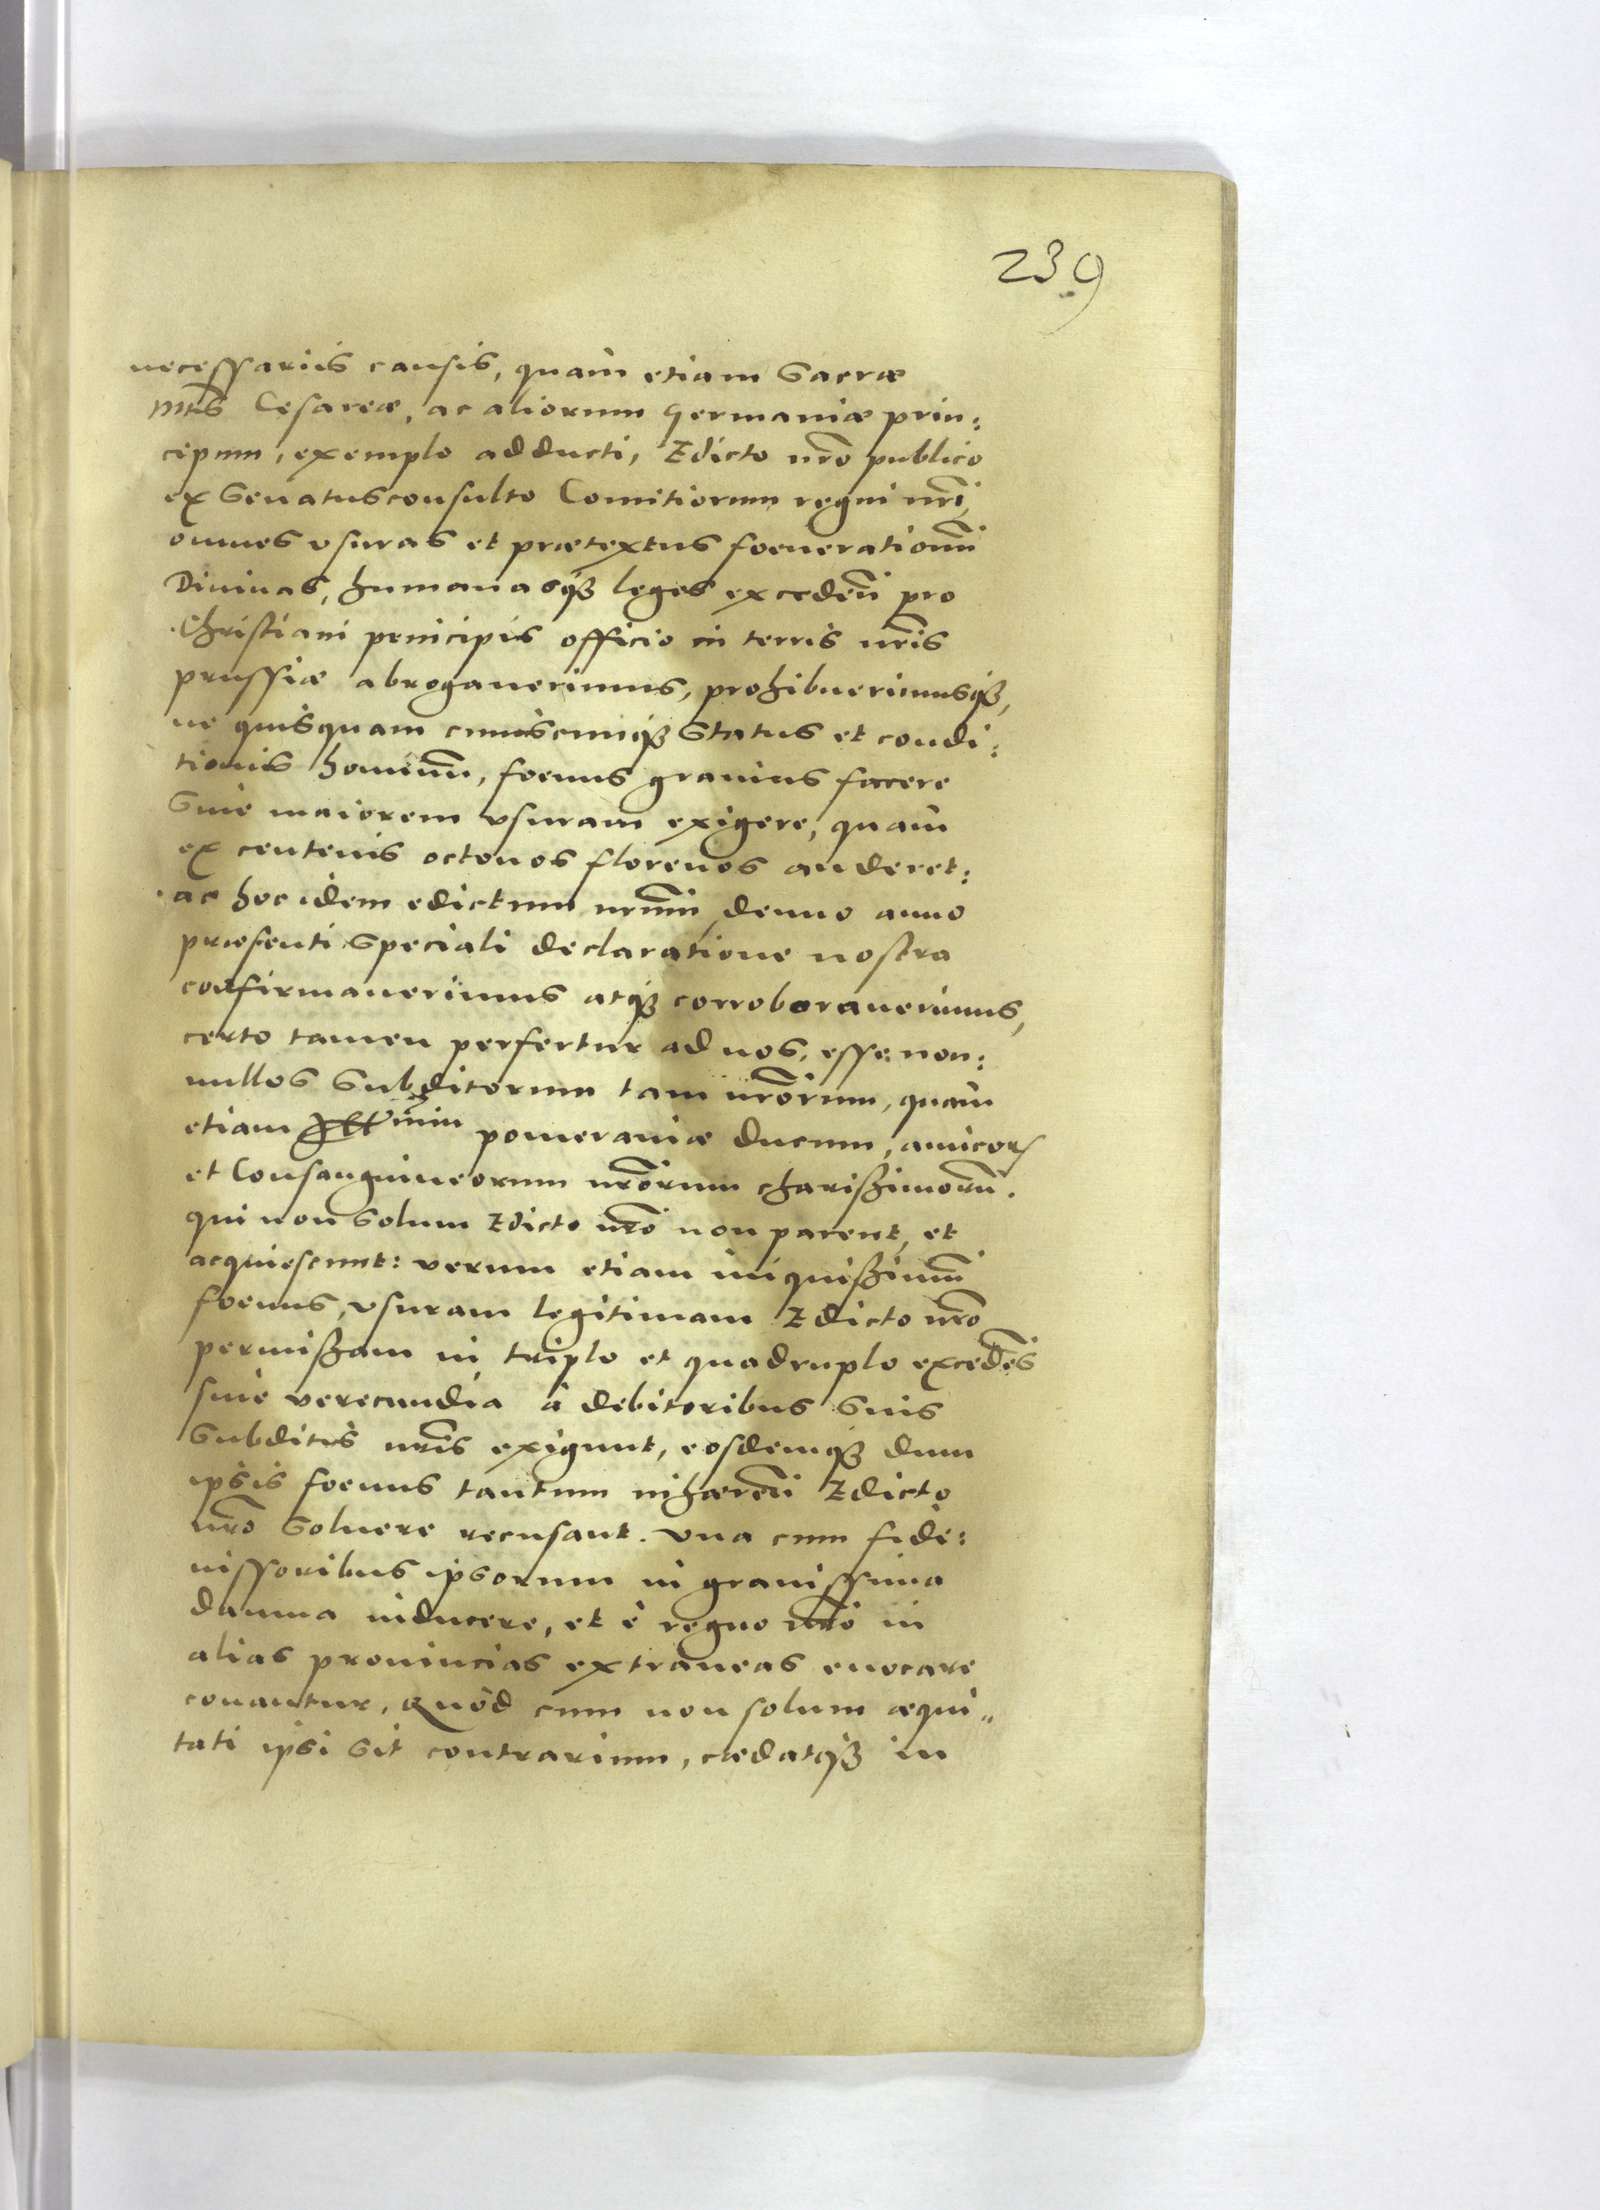 239
necessariis causis, quam etiam Sacræ
Mtis Cesareæ, ac aliorum Germaniæ prin:
cipum, exemplo adducti, Edicto nrō publico
ex Senatusconsulto Comitiorum regni nrī,
omnes vsuras et prætextus foenerationum
Diuinas, humanasq3 leges exceden̄ pro
Christiani principis officio in terris nrīs
prussiæ abrogauerimus, prohibuerimusq3,
ne quisquam cuiuscunq3 Status et condi:
tionis hominum, foenus grauius facere
Siue maiorem vsuram exigere, quam
ex centenis octonos florenos auderet:
ac hoc idem edictum nrūm, denuo anno
præsenti Speciali declaratione nostra
confirmauerimus atq3 corroborauerimus,
certo tamen perfertur ad nos, esse non:
nullos Subditorum tam nrōrum, quam
etiam pomeraniæ Ducum, amicor
et Consanguineorum nrōrum charißimorū.
qui non Solum Edicto nrō non parent, et
acquiescunt: verum etiam iniquißimum
foenus, vsuram legitimam Edicto nrō
permißam in triplo et quadruplo excedēs
sine verecundia à debitoribus Suis
Subditis nrīs exigunt, eosdemq3 dum
ipsis foenus tantum inhæren̄ Edicto
nrō Soluere recusant. vna cum fide:
iussoribus ipsorum in grauissima
damna inducere, et è regno nrō in
alias prouincias extraneas euocare
conantur. Quod cum non solum æqui"
tati ipsi Sit contrarium, cædatq3 in